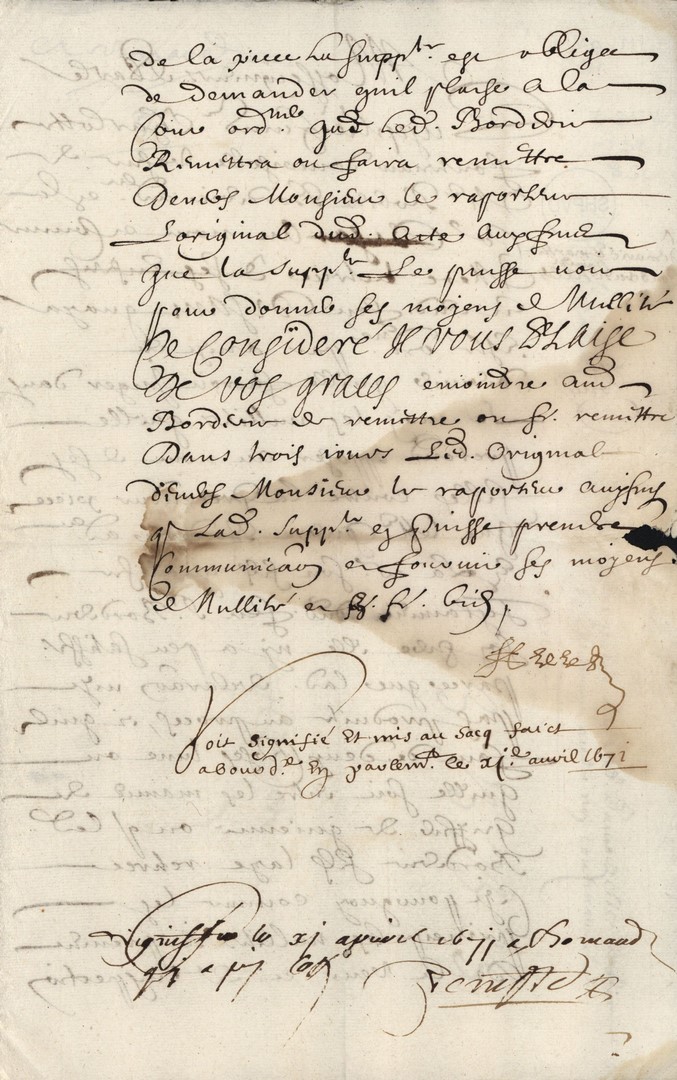 de la piece La supp^te est obligee
de demander quil plaise a la
Cour ord^ner que Led. Bordevir
Remettra ou faira remettre
Devers Monsieur le raporteur
Loriginal dud. acte aux fins
que la supp^te Le puisse voir
pour donner ses moyens de Nullité
Ce Consideré Il vous Plaise
De vos graces enioindre aud.
Bordevir de remettre ou fr. remettre
Dans trois iours Led. Original
devers Monsieur le raporteur aux fins
q Lad. supp^te en puisse prendre
Communicaon et fournir ses moyens
de Nullité et fr. bien
Soit Signifié Et mis au Sacq faict
a bourd. En parlem^t. le xj^e avril 1671
Signiffié le xj apvril 1671 a